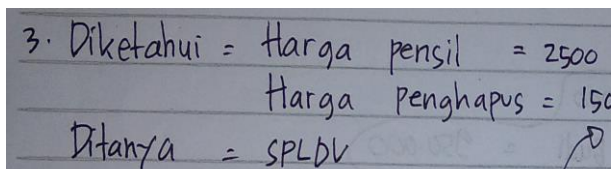 3. Diketahui = Harga pensil = 2500
Harga penghapus = 150
Ditanya = SPLDV